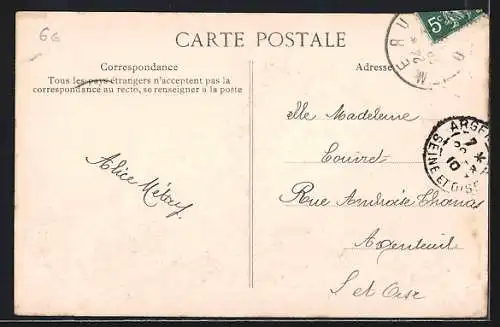 66
CARTE POSTALE
Correspondance
Tous les pays étrangers n'acceptent pas la
correspondance au recto, se renseigner à la poste
Adresse
5c
MERU
24
elle Madeleine
Rue Ambroise Thomas
Argenteuil
S et Oise
Alice
ARGEN
7 *
10
SEINE ET OISE